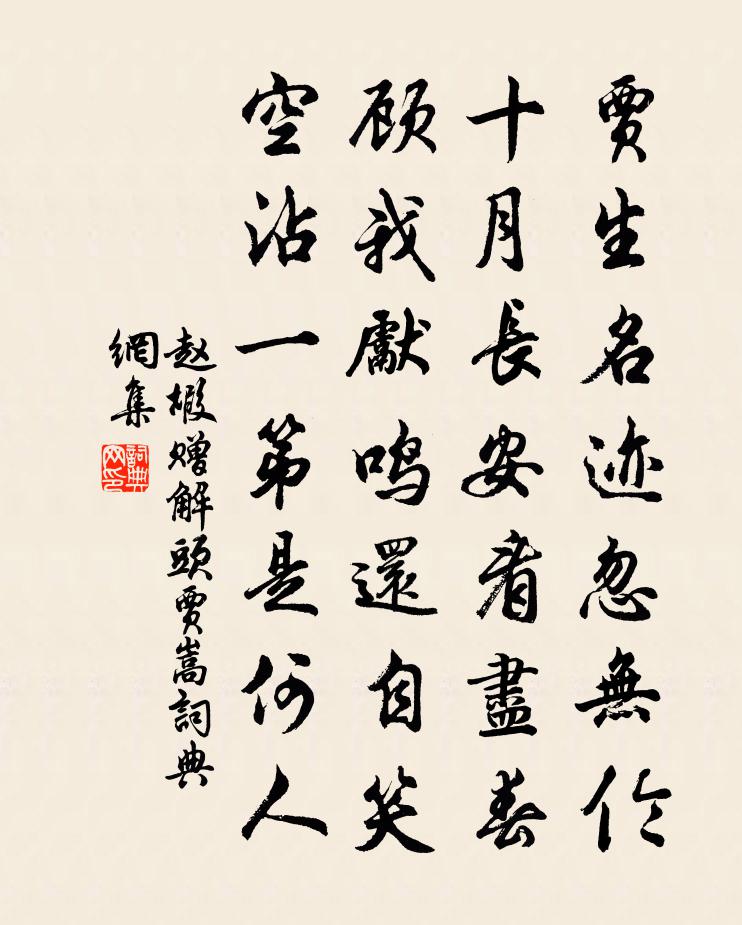 贾生名迹忽無伦
十月長安看盡春
顾我獻鸣還自笑
空沾一第是何人
赵嘏赠解頭贾嵩詞典
網集
詞典
网印